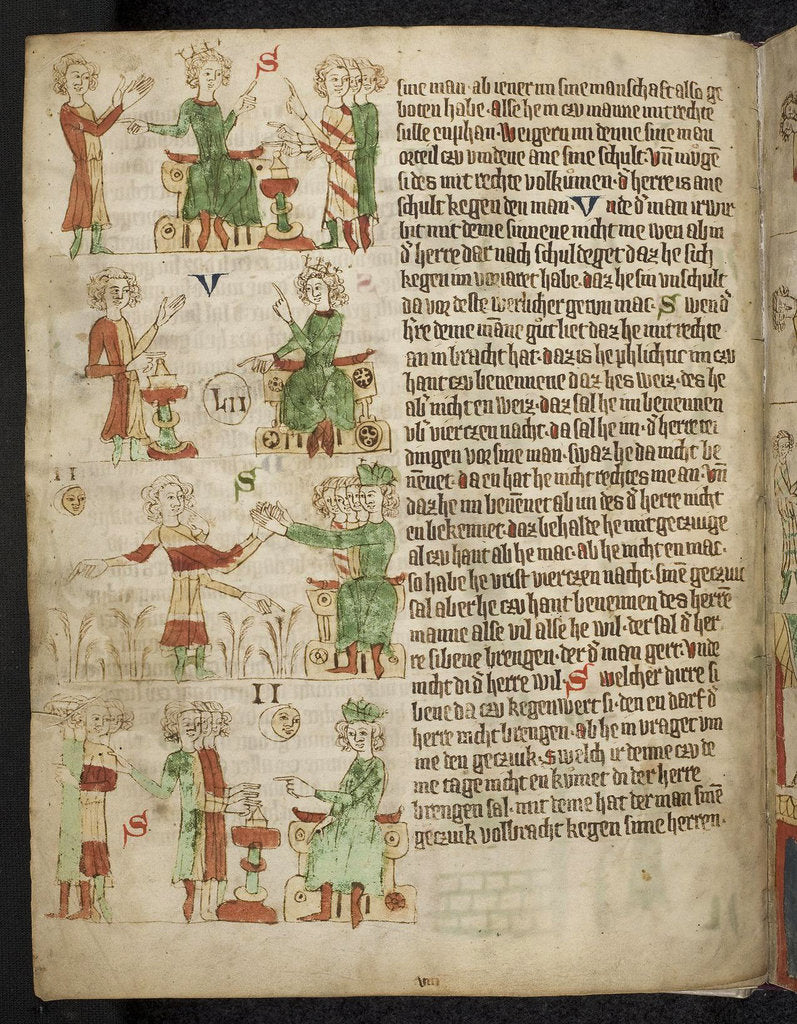 S
V
LII
II
S
II
S
sine man· ab iener im sine manschaft also ge
boten habe· Alse he im czu manne mit rechte
sulle enphan· Weigern im denne sine man
orteil czu vindene ane sine schult· Vn̄ mugē
si des mit rechte volkumen· d̓ herre is ane
schult kegen den man· Vnde d̓ man irwir
bit mit deme sinnene nicht me wen ab in
d̓ herre dar nach schuldeget daz he sich
kegen im voriaret habe· daz he sin vnschult
da vor deste werlicher getun mac· S wen d̓
h̓re deme māne gut liet daz he mit rechte
an in bracht hat· daz is he phlichtic im czu
hant czu benennene daz hes weiz· des he
ab̓ nicht en weiz· daz sal he im benennen
vb̓ vierczen nacht· da sal he im· d̓ herre tei
dingen vor sine man· swaz he da nicht be
nēnet· da en hat he nicht rechtes me an· Vn̄
daz he im benēnet ab im des d̓ herre nicht
en bekennet· daz behalde he mit geczuge
al czu hant ab he mac· ab he nicht en mac·
so habe he vrist vierczen nacht· sinē geczuic
sal aber he czu hant benennen des herrē
manne alse vil alse he wil· der sal d̓ her
re sibene brengen· der d̓ man gert· Vnde
nicht di d̓ herre wil· S welcher dirre si
bene da czu kegenwert si· den en darf d̓
herre nicht brengen· ab he in vraget vm
me den geczuik· Swelch ir denne czu de
me tage nicht en kumet di der herre
brengen sal· mit deme hat der man sinē
geczuik volbracht kegen sime herren·